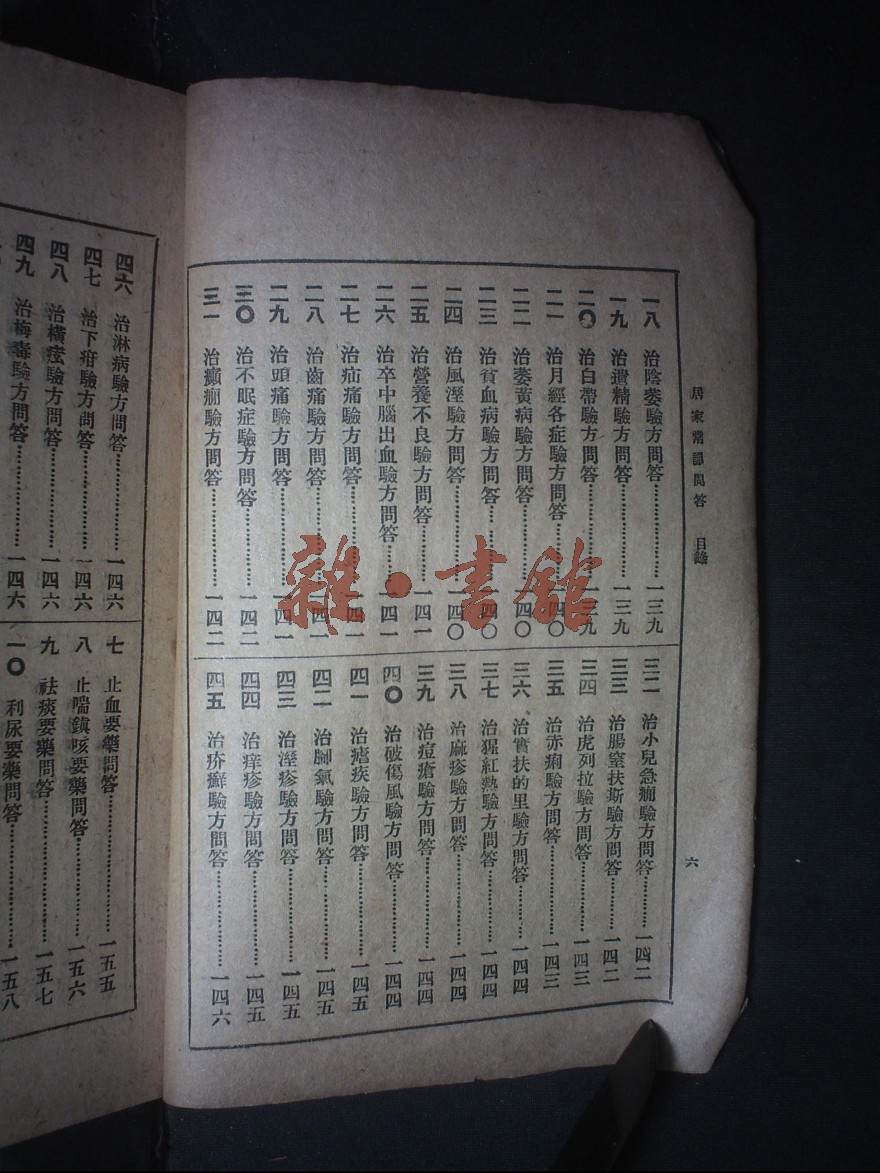 居家常識問答 目錄
六
一八 治陰萎驗方問答…………一三九
一九 治遺精驗方問答…………一三九
二〇 治白帶驗方問答…………一三九
二一 治月經各症驗方問答…………一四〇
二二 治萎黃病驗方問答…………一四〇
二三 治貧血病驗方問答…………一四〇
二四 治風溼驗方問答…………一四〇
二五 治營養不良驗方問答…………一四一
二六 治卒中腦出血驗方問答…………一四一
二七 治疝痛驗方問答…………一四一
二八 治齒痛驗方問答…………一四一
二九 治頭痛驗方問答…………一四一
三〇 治不眠症驗方問答…………一四二
三一 治癲癇驗方問答…………一四二
三二 治小兒急癎驗方問答…………一四二
三三 治腸窒扶斯驗方問答…………一四二
三四 治虎列拉驗方問答…………一四三
三五 治赤痢驗方問答…………一四三
三六 治實扶的里驗方問答…………一四四
三七 治猩紅熱驗方問答…………一四四
三八 治麻疹驗方問答…………一四四
三九 治痘瘡驗方問答…………一四四
四〇 治破傷風驗方問答…………一四四
四一 治瘧疾驗方問答…………一四五
四二 治脚氣驗方問答…………一四五
四三 治溼疹驗方問答…………一四五
四四 治痒疹驗方問答…………一四五
四五 治疥癬驗方問答…………一四六
四六 治淋病驗方問答…………一四六
四七 治下疳驗方問答…………一四六
四八 治橫痃驗方問答…………一四六
四九 治梅毒驗方問答…………一四六
七 止血要藥問答…………一五五
八 止喘鎮咳要藥問答…………一五六
九 祛痰要藥問答…………一五七
一〇 利尿要藥問答…………一五八
雜·書館